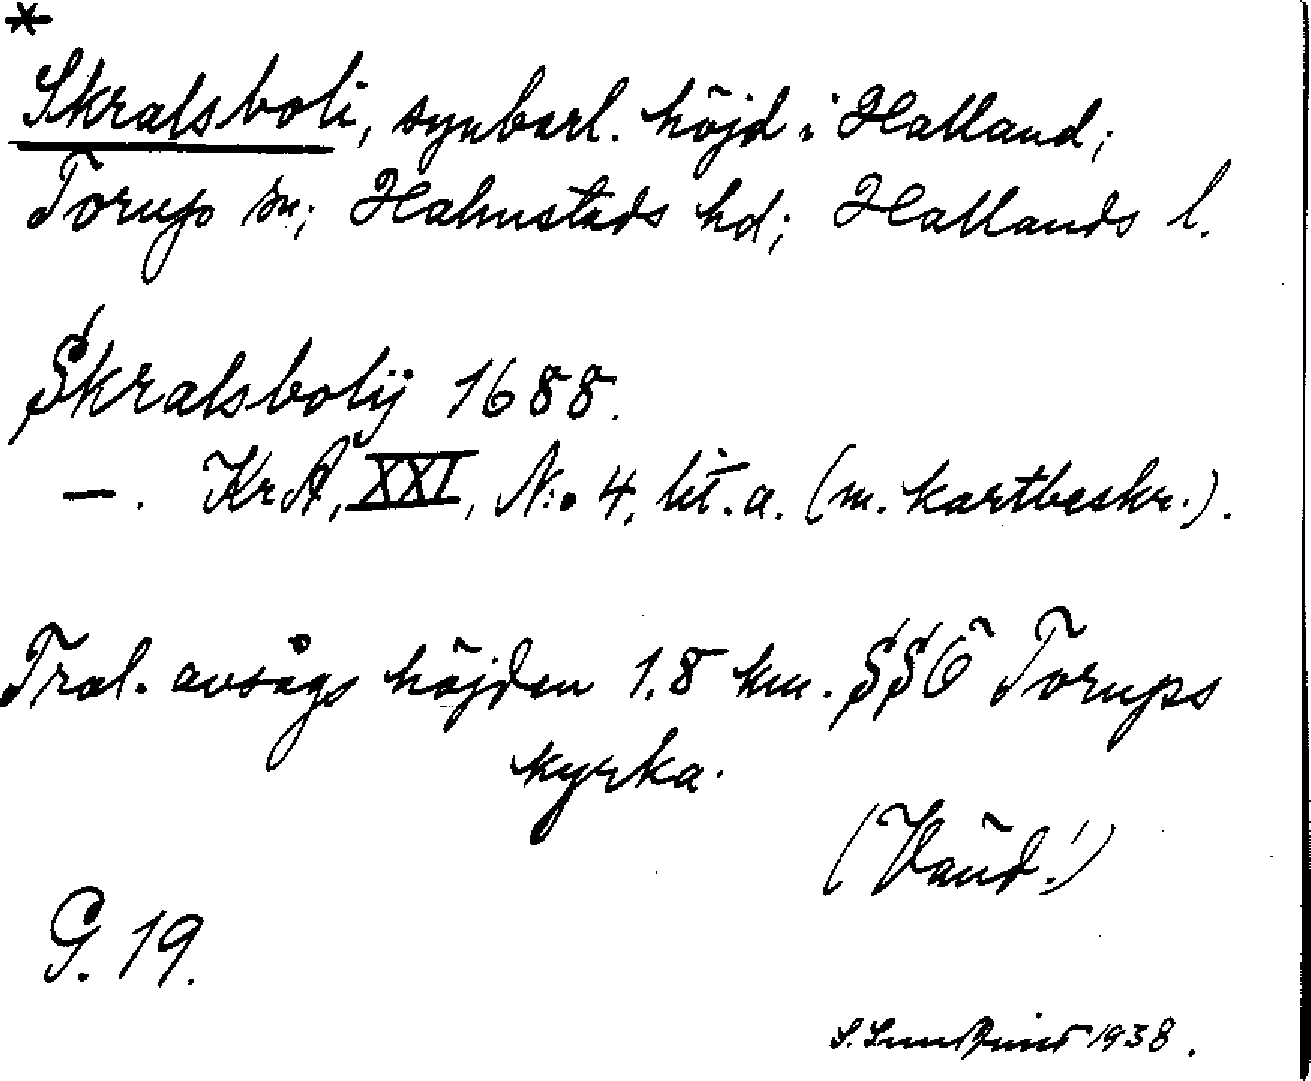 *
Skralsboli, synbarl. höjd i Halland;
Torup sn; Halmstads hd; Hallands l.
Skralsbolij 1688.
—. Kr A, XXI, N:o 4, lit. a. (m. kartbeskr.).
Trol. avsågs höjden 1.8 km. SSÖ Torups
kyrka.
(Vänd!)
G. 19.
S. Lundquist 1938.